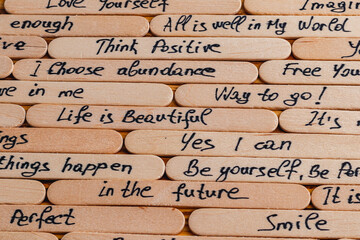 Love Yourself Imagin
enough All is well in My World
ive Think Positive
I Choose abundance Free You
ve in me Way to go!
Life is Beautiful It's
ngs Yes I can
things happen Be yourself, Be Po
in the future It is
Perfect Smile